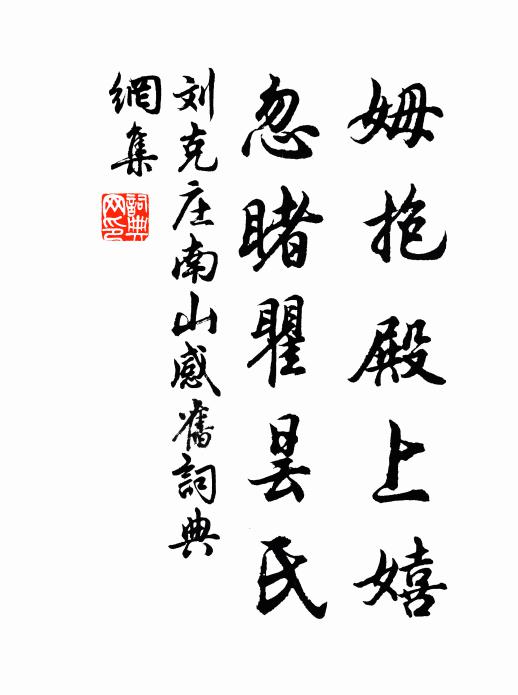 姆抱殿上嬉
忽睹瞿昙氏
刘克庄南山感舊詞典
網集
詞典网印